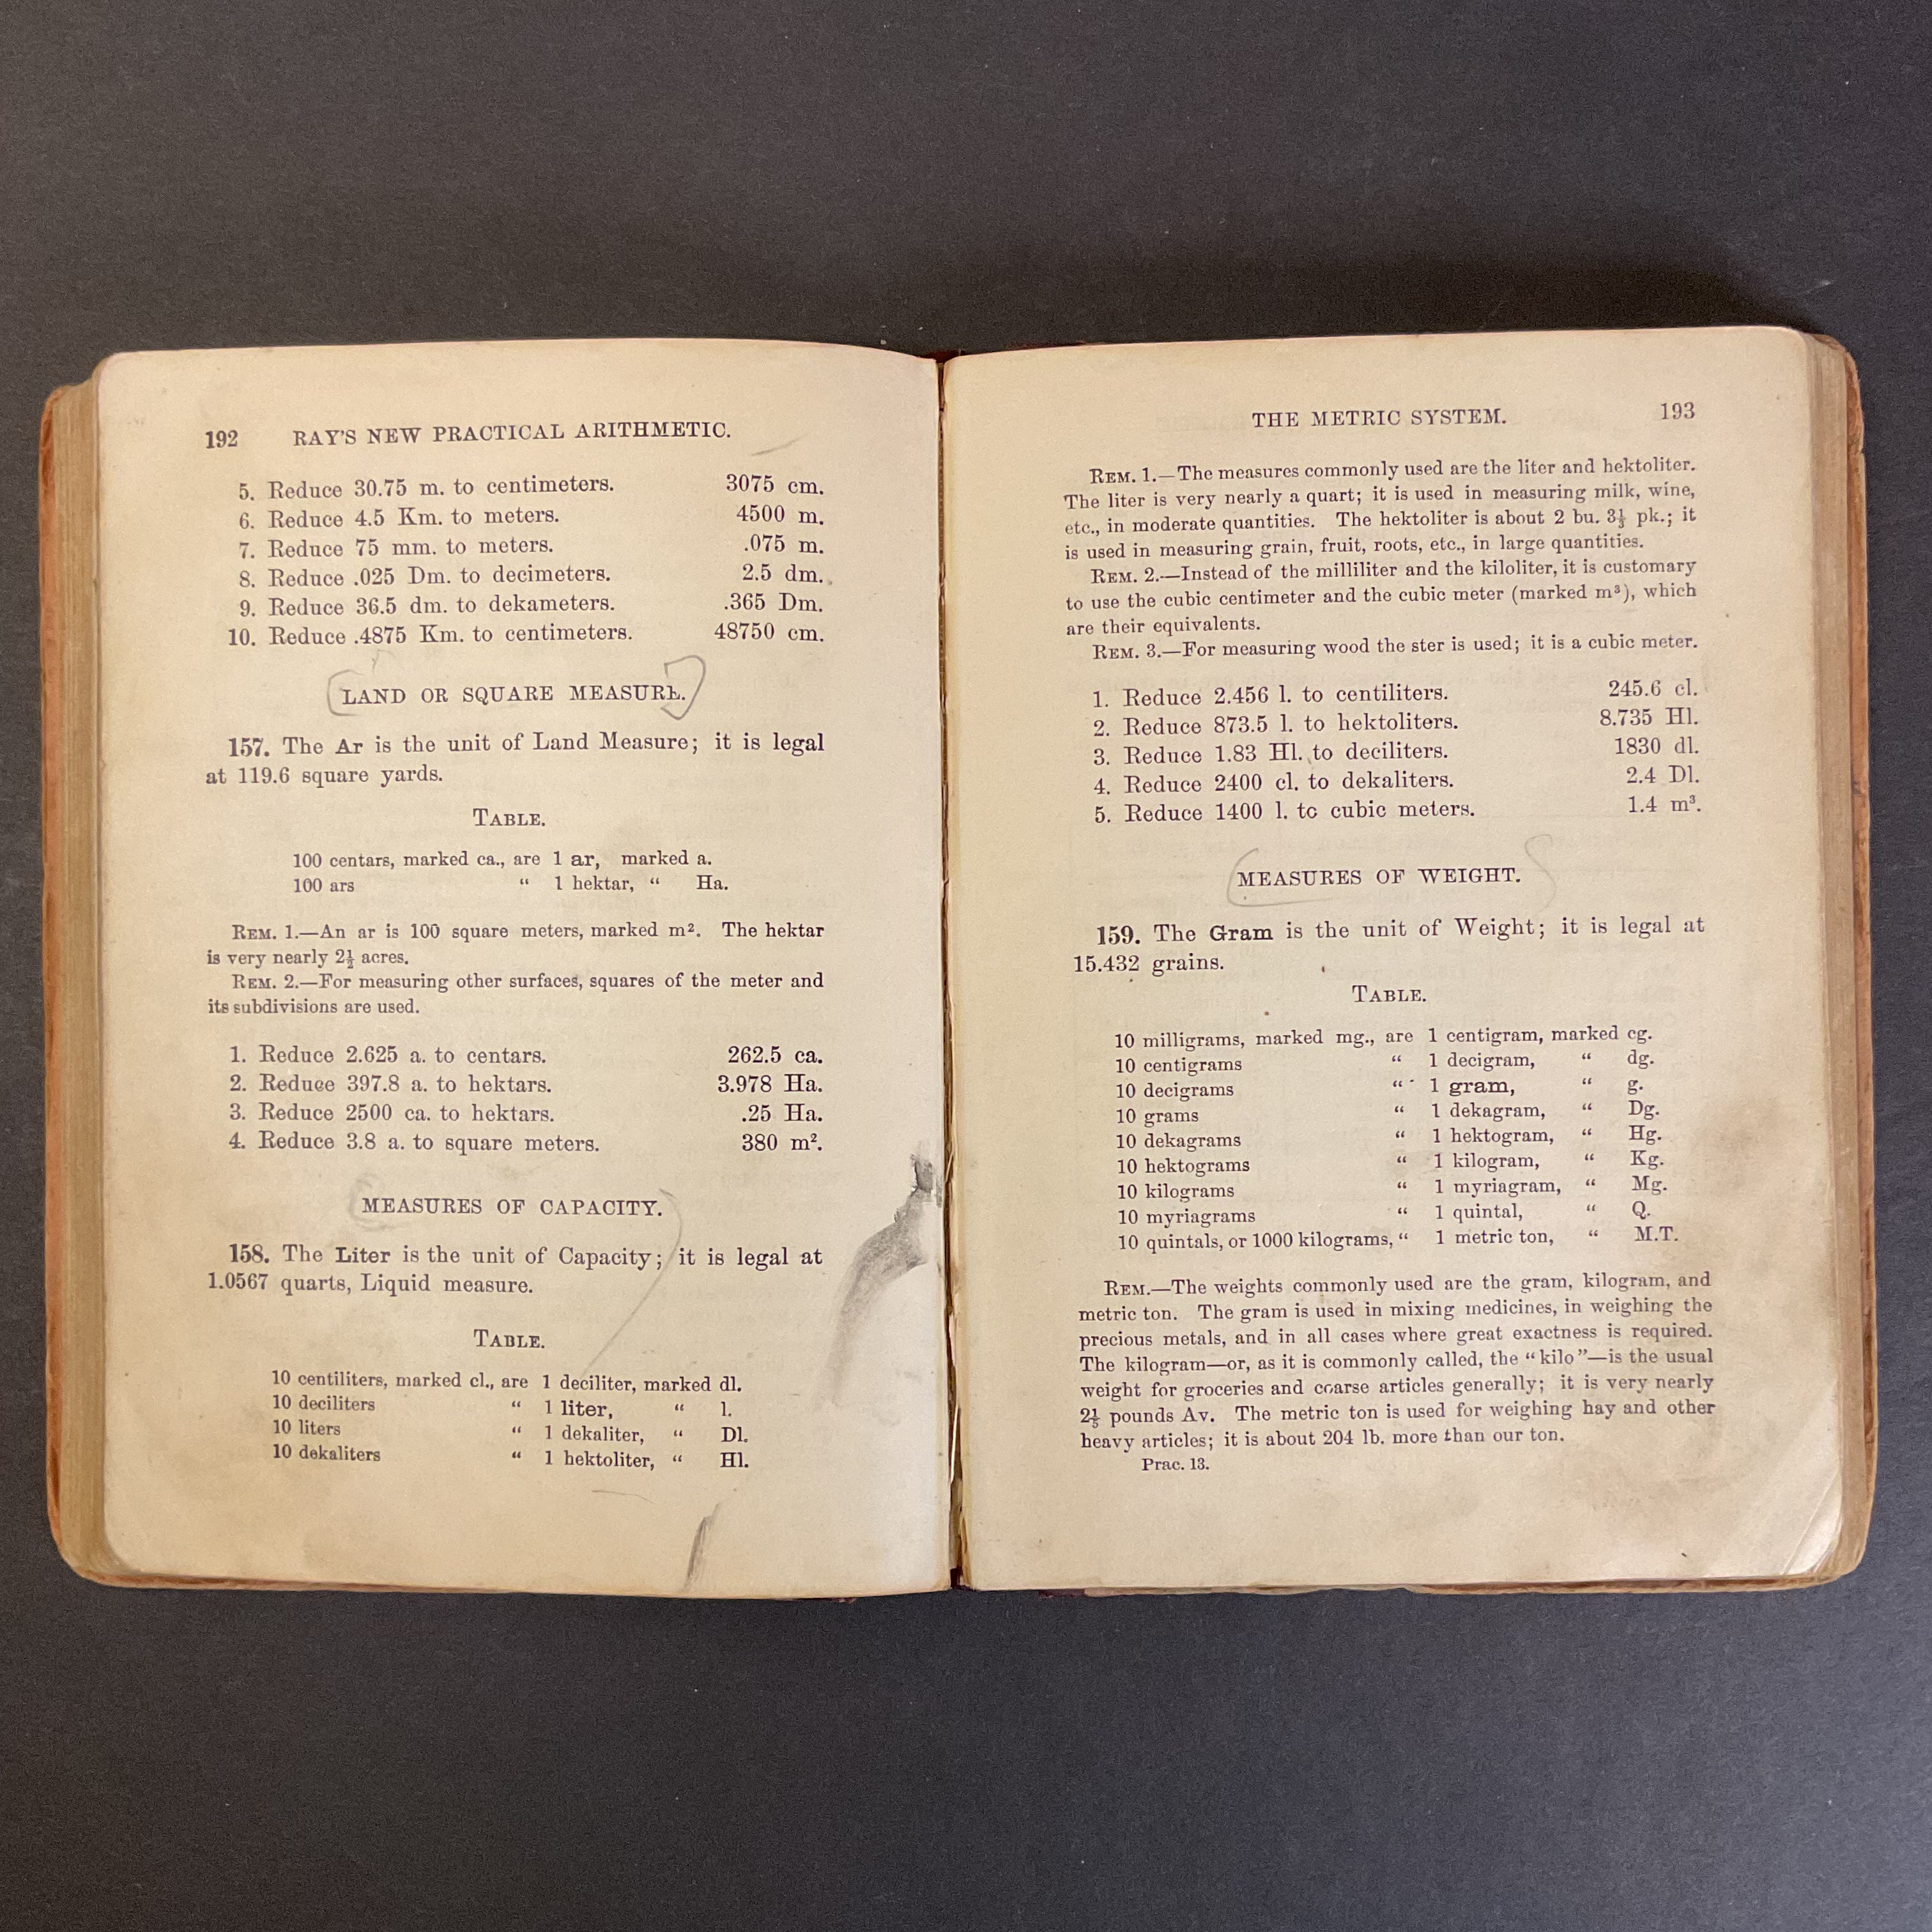 192 RAY'S NEW PRACTICAL ARITHMETIC.
5. Reduce 30.75 m. to centimeters. 3075 cm.
6. Reduce 4.5 Km. to meters. 4500 m.
7. Reduce 75 mm. to meters. .075 m.
8. Reduce .025 Dm. to decimeters. 2.5 dm.
9. Reduce 36.5 dm. to dekameters. .365 Dm.
10. Reduce .4875 Km. to centimeters. 48750 cm.
LAND OR SQUARE MEASURE.
157. The Ar is the unit of Land Measure; it is legal
at 119.6 square yards.
TABLE.
100 centars, marked ca., are 1 ar, marked a.
100 ars “ 1 hektar, “ Ha.
REM. 1.—An ar is 100 square meters, marked m². The hektar
is very nearly 2½ acres.
REM. 2.—For measuring other surfaces, squares of the meter and
its subdivisions are used.
1. Reduce 2.625 a. to centars. 262.5 ca.
2. Reduce 397.8 a. to hektars. 3.978 Ha.
3. Reduce 2500 ca. to hektars. .25 Ha.
4. Reduce 3.8 a. to square meters. 380 m².
MEASURES OF CAPACITY.
158. The Liter is the unit of Capacity; it is legal at
1.0567 quarts, Liquid measure.
TABLE.
10 centiliters, marked cl., are 1 deciliter, marked dl.
10 deciliters “ 1 liter, “ l.
10 liters “ 1 dekaliter, “ Dl.
10 dekaliters “ 1 hektoliter, “ Hl.
THE METRIC SYSTEM. 193
REM. 1.—The measures commonly used are the liter and hektoliter.
The liter is very nearly a quart; it is used in measuring milk, wine,
etc., in moderate quantities. The hektoliter is about 2 bu. 3⅓ pk.; it
is used in measuring grain, fruit, roots, etc., in large quantities.
REM. 2.—Instead of the milliliter and the kiloliter, it is customary
to use the cubic centimeter and the cubic meter (marked m³), which
are their equivalents.
REM. 3.—For measuring wood the ster is used; it is a cubic meter.
1. Reduce 2.456 l. to centiliters. 245.6 cl.
2. Reduce 873.5 l. to hektoliters. 8.735 Hl.
3. Reduce 1.83 Hl. to deciliters. 1830 dl.
4. Reduce 2400 cl. to dekaliters. 2.4 Dl.
5. Reduce 1400 l. to cubic meters. 1.4 m³.
MEASURES OF WEIGHT.
159. The Gram is the unit of Weight; it is legal at
15.432 grains.
TABLE.
10 milligrams, marked mg., are 1 centigram, marked cg.
10 centigrams “ 1 decigram, “ dg.
10 decigrams “ 1 gram, “ g.
10 grams “ 1 dekagram, “ Dg.
10 dekagrams “ 1 hektogram, “ Hg.
10 hektograms “ 1 kilogram, “ Kg.
10 kilograms “ 1 myriagram, “ Mg.
10 myriagrams “ 1 quintal, “ Q.
10 quintals, or 1000 kilograms, “ 1 metric ton, “ M.T.
REM.—The weights commonly used are the gram, kilogram, and
metric ton. The gram is used in mixing medicines, in weighing the
precious metals, and in all cases where great exactness is required.
The kilogram—or, as it is commonly called, the “kilo”—is the usual
weight for groceries and coarse articles generally; it is very nearly
2⅕ pounds Av. The metric ton is used for weighing hay and other
heavy articles; it is about 204 lb. more than our ton.
Prac. 13.